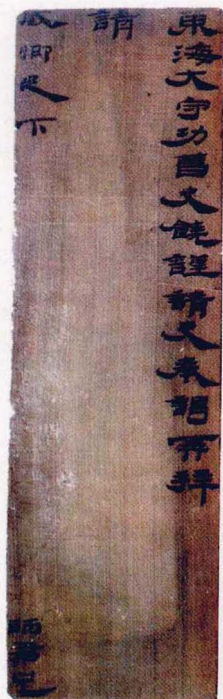 東海大守功曹史饒謹請吏奉謁再拜
請
威卿足下 師君兄